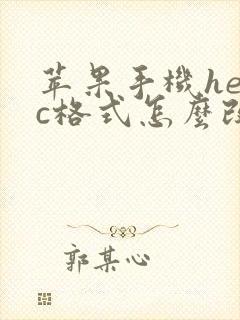 苹果手機he
c格式怎麼改
郭某心